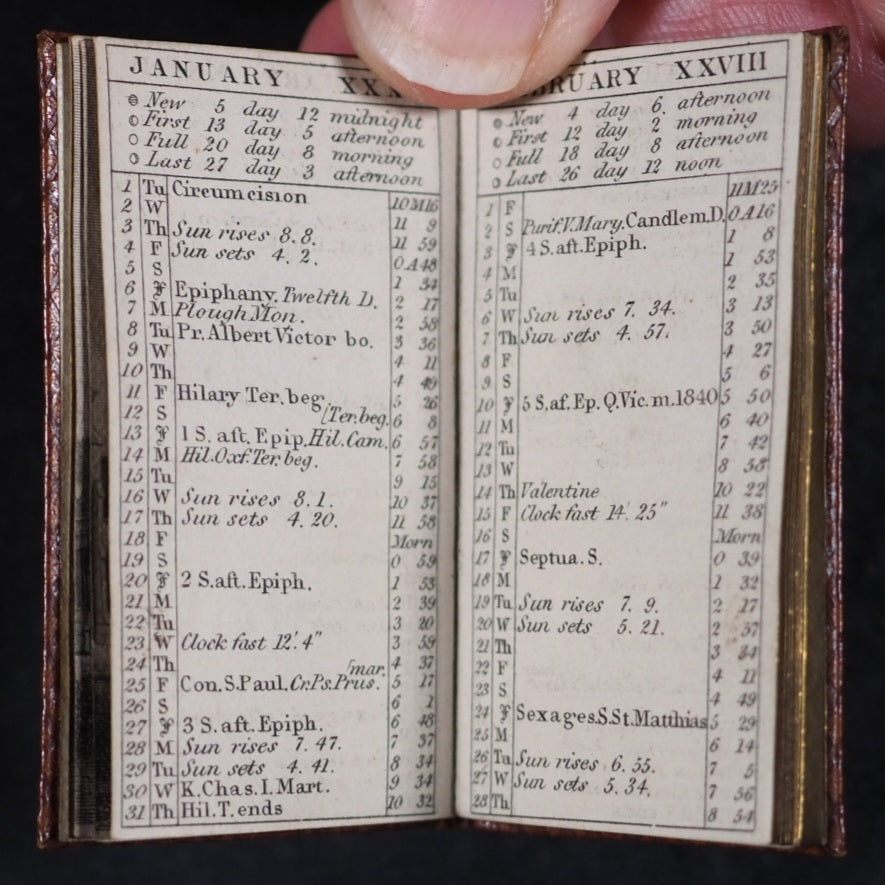 JANUARY XXX
New 5 day 12 midnight
First 13 day 5 afternoon
Full 20 day 8 morning
Last 27 day 3 afternoon
1 Tu Circumcision 10M16
2 W 11 9
3 Th Sun rises 8.8. 11 59
4 F Sun sets 4.2. 0A48
5 S 1 34
6 F Epiphany. Twelfth D. 2 17
7 M Plough Mon. 2 58
8 Tu Pr. Albert Victor bo. 3 36
9 W 4 11
10 Th 4 49
11 F Hilary Ter. beg. 5 26
12 S [Ter. beg. 6 8
13 F 1 S. aft. Epip. Hil. Cam. 6 57
14 M Hil. Oxf. Ter. beg. 7 58
15 Tu 9 15
16 W Sun rises 8.1. 10 37
17 Th Sun sets 4.20. 11 58
18 F Morn
19 S 0 59
20 F 2 S. aft. Epiph. 1 53
21 M 2 39
22 Tu 3 20
23 W Clock fast 12'. 4" 3 59
24 Th [mar. 4 37
25 F Con. S. Paul. Cr. Ps. Prus. 5 17
26 S 6 1
27 F 3 S. aft. Epiph. 6 48
28 M Sun rises 7.47. 7 37
29 Tu Sun sets 4.41. 8 34
30 W K. Chas. I. Mart. 9 34
31 Th Hil. T. ends 10 32
BRUARY XXVIII
New 4 day 6. afternoon
First 12 day 2 morning
Full 18 day 8 afternoon
Last 26 day 12 noon
1 F 11M25
2 S Purif. V. Mary. Candlem. D. 0A16
3 F 4 S. aft. Epiph. 1 8
4 M 1 53
5 Tu 2 35
6 W Sun rises 7.34. 3 13
7 Th Sun sets 4.57. 3 50
8 F 4 27
9 S 5 6
10 F 5 S. af. Ep. Q. Vic. m. 1840 5 50
11 M 6 40
12 Tu 7 42
13 W 8 58
14 Th Valentine 10 22
15 F Clock fast 14'. 25" 11 38
16 S Morn
17 F Septua. S. 0 39
18 M 1 32
19 Tu Sun rises 7.9. 2 17
20 W Sun sets 5.21. 2 57
21 Th 3 34
22 F 4 11
23 S 4 49
24 F Sexages. S. St. Matthias 5 29
25 M 6 14
26 Tu Sun rises 6.55. 7 5
27 W Sun sets 5.34. 7 56
28 Th 8 54